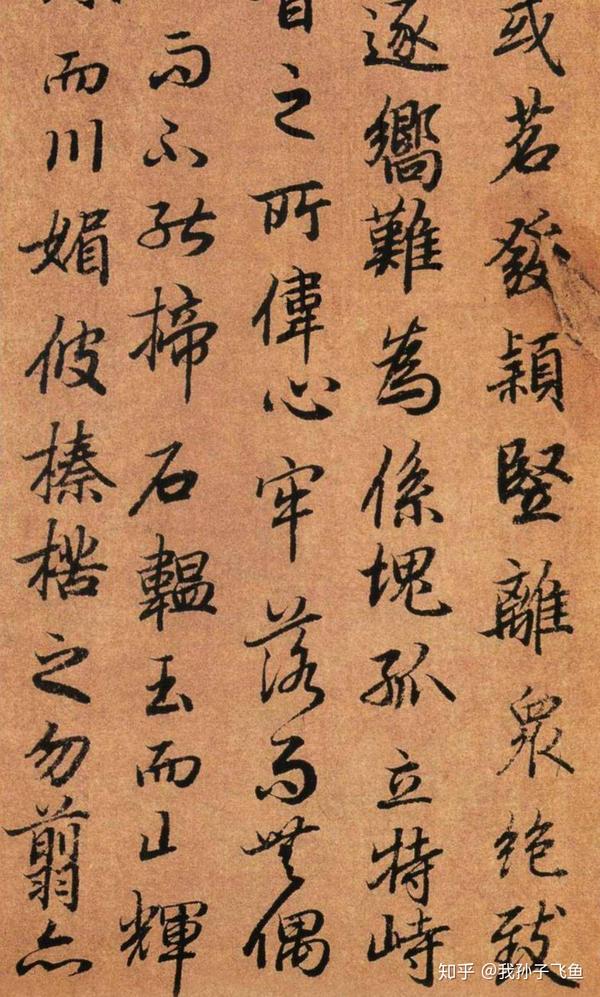 或苕發穎竪離眾絕致
逐嚮難為係塊孤立特峙
之所偉心牢落而無偶
而不能揥石韞玉而山輝
而川媚彼榛楛之勿翦亦
知乎 @我孙子飞鱼